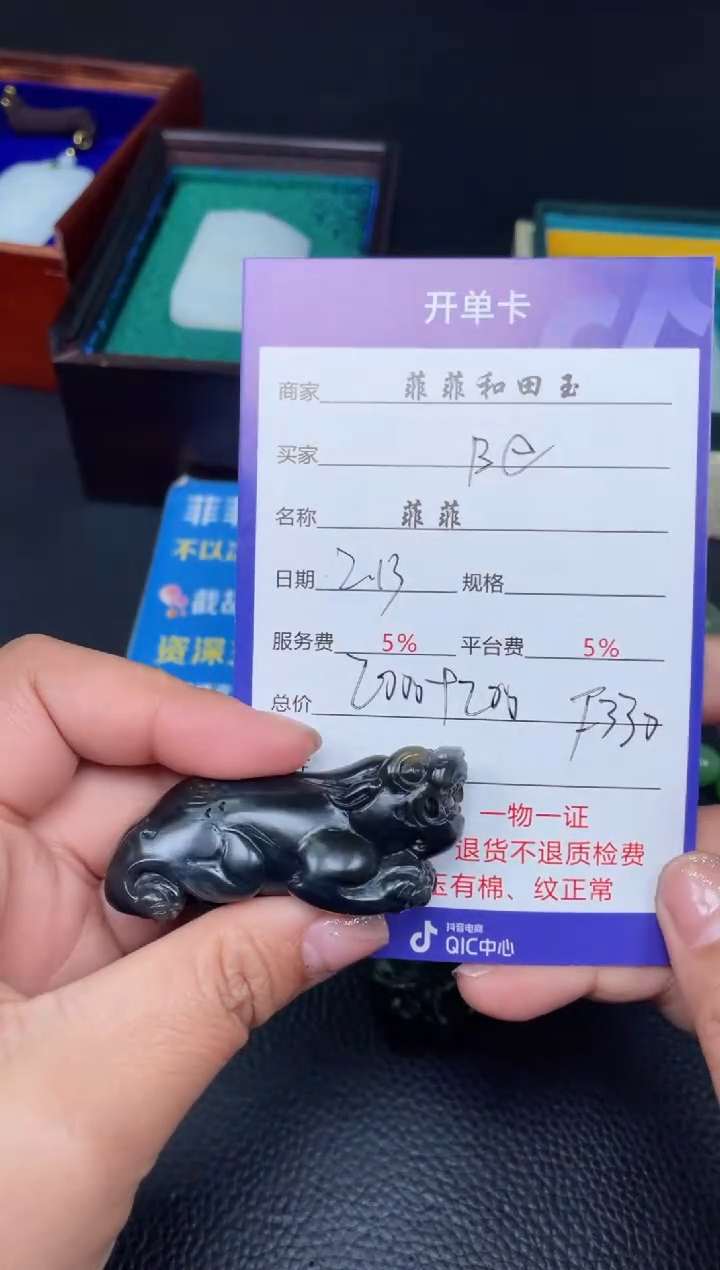 开单卡
商家 菲菲和田玉
买家 Be
名称 菲菲
日期 2.13 规格
服务费 5% 平台费 5%
总价 2000+200 F330
一物一证
退货不退质检费
玉有棉、纹正常
抖音电商
QIC中心
菲
不以
截
资深